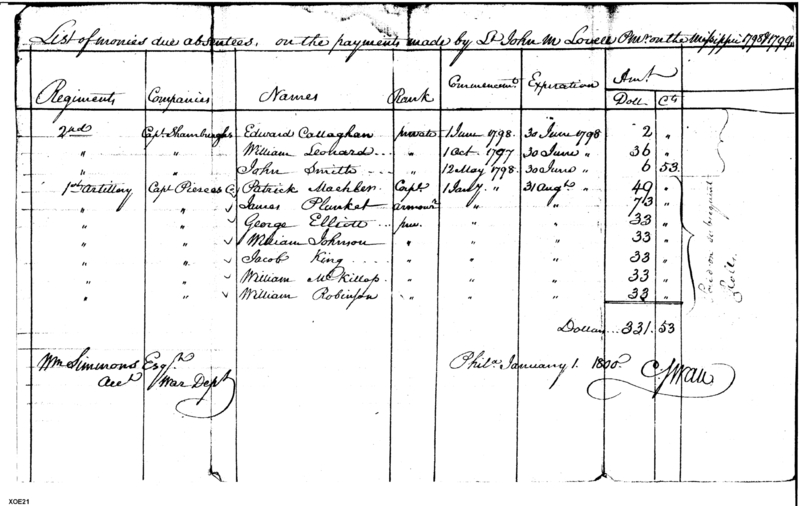 List of monies due absentees, on the payments made by Lt John M Lovell P.Mr. on the Missisippi 1798 & 1799.
Regiments Companies Names Rank Commencemt. Expiration Amt. Doll Cts
2nd Capt Shamburghs Edward Callaghan private 1 June 1798. 30 June 1798 2 "
" " William Leonard ... " 1 Oct 1797 30 June " 36 "
" " John Smith ... " 12 May 1798. 30 June " 6 53
1st Artillery Capt Pierces Co Patrick Corpl 1 Jany " 31 Augt " 49 "
" " James Plunket armour " " 73 "
" " George Elliott ... priv. " " 33 "
" " William Johnson " " " 33 "
" " Jacob King ... " " " 33 "
" " William McKillop " " " 33 "
" " William Robinson " " " 33 "
Paid on subsequent Roll.
Dollars ... 331. 53
Wm Simmons Esqr.
Acct War Dept
Phila. January 1. 1800.
C Swan
XOE21